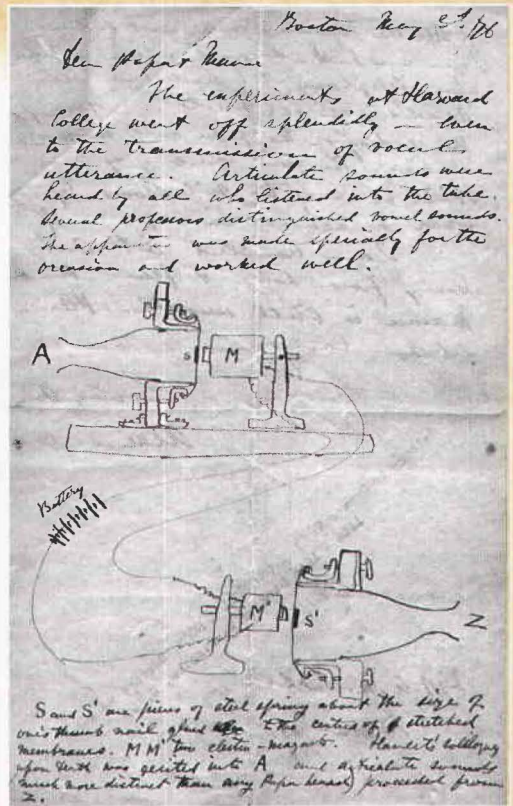 Boston May 3d /76
Dear Papa & Mama
The experiments at Harvard
College went off splendidly — even
to the transmission of vocal
utterance. Articulate sounds were
heard by all who listened into the tube.
Several professors distinguished vowel sounds.
The apparatus was made specially for the
occasion and worked well.
A
S
M
Battery
M'
S'
Z
S and S' are pieces of steel spring about the size of
one's thumb nail glued to the centres of stretched
membranes. M M' two electro-magnets. Hamlet's soliloquy
upon death was into A and articulate sounds
much more distinct than any Papa heard proceeded from
Z.